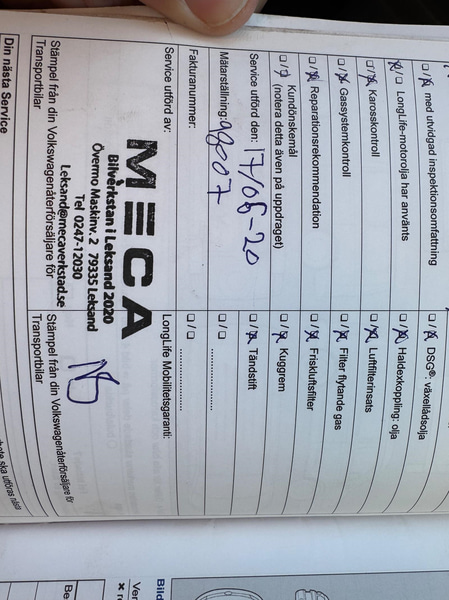 ☐/☒ med utvidgad inspektionsomfattning
☒/☐ LongLife-motorolja har använts
☐/☒ Karosskontroll
☐/☒ Gassystemkontroll
☐/☒ Reparationsrekommendation
☐/☐ Kundönskemål
(notera detta även på uppdraget)
Service utförd den: 17/08-20
Mätarställning: 98007
Fakturanummer:
Service utförd av:
MECA
Bilverkstan i Leksand 2020
Övermo Maskinv. 2 79335 Leksand
Tel 0247-12030
Leksand@mecaverkstad.se
Stämpel från din Volkswagenåterförsäljare för
Transportbilar
Din nästa Service
☐/☒ DSG®: växellådsolja
☐/☒ Haldexkoppling: olja
☐/☒ Luftfilterinsats
☐/☒ Filter flytande gas
☐/☒ Friskluftsfilter
☐/☒ Kuggrem
☐/☒ Tändstift
☐/☐
☐/☐
LongLife Mobilitetsgaranti:
Stämpel från din Volkswagenåterförsäljare för
Transportbilar
ska utföras nästa
Bild